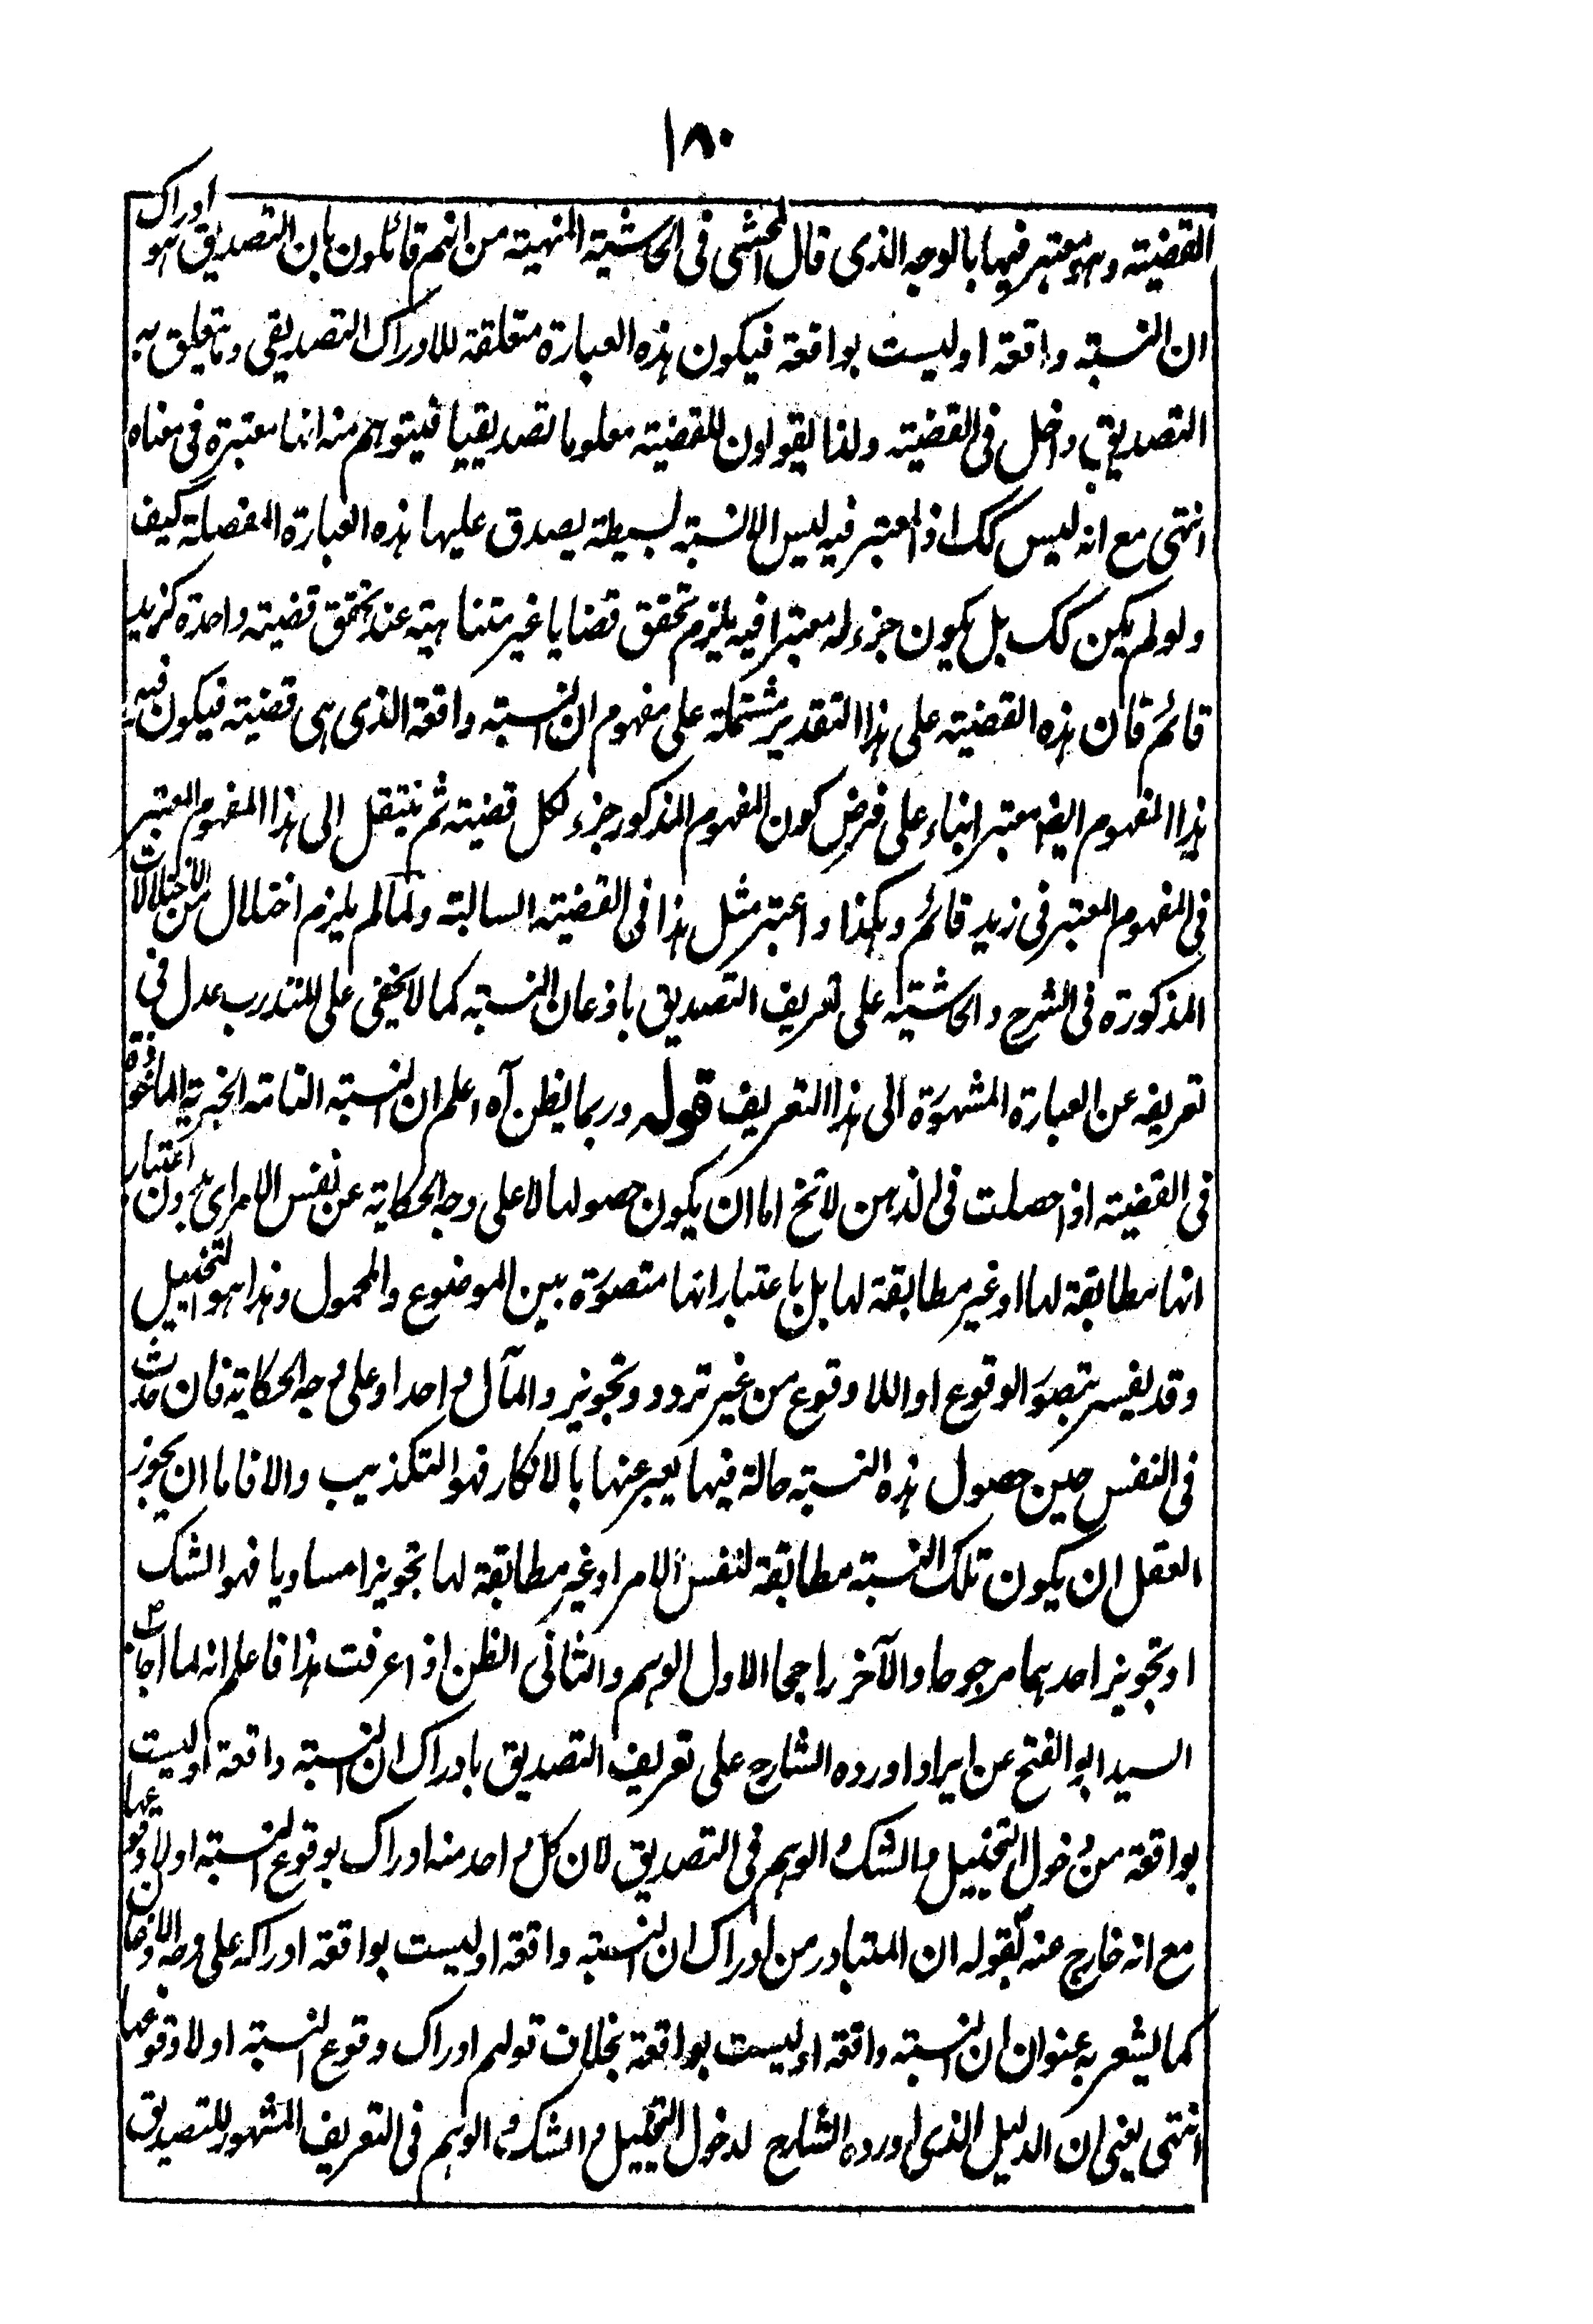 ١٨٠
القضية وهو معتبر فيها بالوجه الذى قال المحشى فى الحاشية المنهية من انهم قائلون بان التصديق هو ادراك
ان النسبة واقعة او ليست بواقعة فيكون هذه العبارة متعلقة للادراك التصديقى وما يتعلق به
التصديق داخل فى القضية ولذا يقولون للقضية معلوما تصديقيا فيتوهم منه انها معتبرة فى معناه
انتهى مع انه ليس كك اذ المعتبر فيه ليس الا نسبة بسيطة يصدق عليها هذه العبارة المفصلة كيف
ولو لم يكن كك بل يكون جزء له معتبرا فيه يلزم تحقق قضايا غير متناهية عند تحقق قضية واحدة كزيد
قائم فان هذه القضية على هذا التقدير مشتملة على مفهوم ان النسبة واقعة الذى هى قضية فيكون فيه
هذا المفهوم ايضا معتبرا بناء على فرض كون المفهوم المذكور جزء لكل قضية ثم ينتقل الى هذا المفهوم المعتبر
فى المفهوم المعتبر فى زيد قائم وهكذا واعتبر مثل هذا فى القضية السالبة ولما لم يلزم اختلال من الاختلالات
المذكورة فى الشرح والحاشية على تعريف التصديق باذعان النسبة كما لا يخفى على المتدرب عدل فى
تعريفه عن العبارة المشهورة الى هذا التعريف قوله وربما يظن آه اعلم ان النسبة التامة الخبرية الماخوذة
فى القضية اذا حصلت فى الذهن لا تخ اما ان يكون حصولها لا على وجه الحكاية عن نفس الامر اى بدون اعتبار
انها مطابقة لها او غير مطابقة لها بل باعتبار انها متصورة بين الموضوع والمحمول وهذا هو التخييل
وقد يفسر بتصور الوقوع او اللا وقوع من غير تردد وتجويز والمآل واحد او على وجه الحكاية فان حدث
فى النفس حين حصول هذه النسبة حالة فيها يعبر عنها بالانكار فهو التكذيب والا فاما ان يجوز
العقل ان يكون تلك النسبة مطابقة لنفس الامر او غير مطابقة لها تجويزا مساويا فهو الشك
او تجويز احدهما مرجوحا والآخر راجحا الاول الوهم والثانى الظن اذا عرفت هذا فاعلم انه لما اجاب
السيد ابو الفتح عن ايراد اورده الشارح على تعريف التصديق بادراك ان النسبة واقعة او ليست
بواقعة من دخول التخييل والشك والوهم فى التصديق لان كل واحد منه ادراك بوقوع النسبة او لا وقوعها
مع انه خارج عنه بقوله ان المتبادر من ادراك ان النسبة واقعة او ليست بواقعة ادراكه على وجه الاذعان
كما يشعر به عنوان ان النسبة واقعة او ليست بواقعة بخلاف قولهم ادراك وقوع النسبة او لا وقوعها
انتهى يعنى ان الدليل الذى اورده الشارح لدخول التخييل والشك والوهم فى التعريف المشهور للتصديق